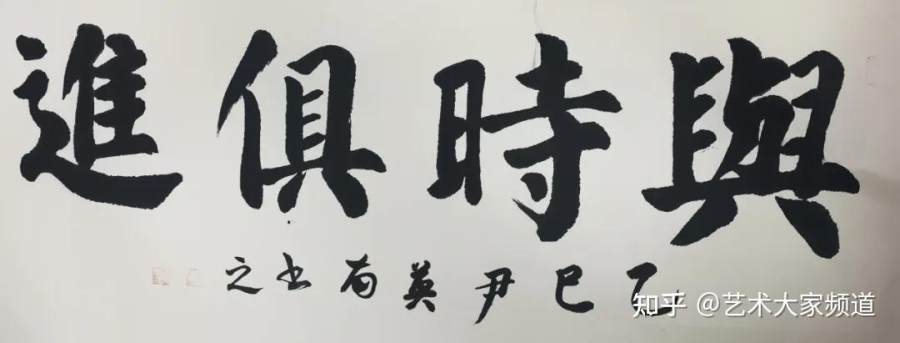 與時俱進
乙巳尹英书之
知乎 @艺术大家频道